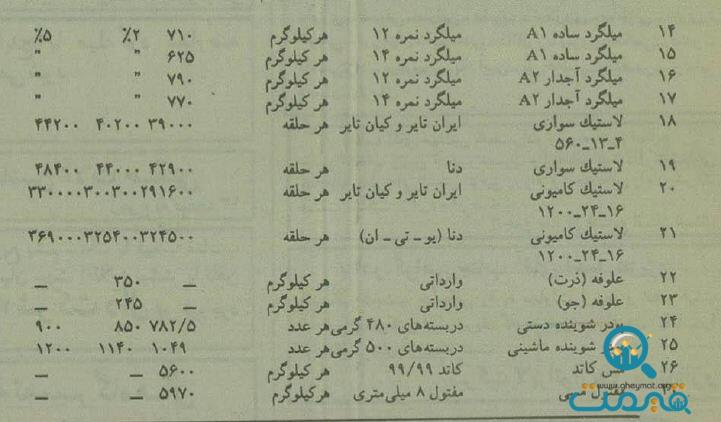 ۱۴ میلگرد ساده A۱ میلگرد نمره ۱۲ هرکیلوگرم ۷۱۰ ۲٪ ۵٪
۱۵ میلگرد ساده A۱ میلگرد نمره ۱۴ هرکیلوگرم ۶۲۵ " "
۱۶ میلگرد آجدار A۲ میلگرد نمره ۱۲ هرکیلوگرم ۷۹۰ " "
۱۷ میلگرد آجدار A۲ میلگرد نمره ۱۴ هرکیلوگرم ۷۷۰ " "
۱۸ لاستیك سواری ایران تایر و کیان تایر هر حلقه ۳۹۰۰۰ ۴۰۲۰۰ ۴۴۲۰۰
۴_۱۳_۵۶۰
۱۹ لاستیك سواری دنا هر حلقه ۴۲۹۰۰ ۴۴۰۰۰ ۴۸۴۰۰
۲۰ لاستیك کامیونی ایران تایر و کیان تایر هر حلقه ۲۹۱۶۰۰ ۳۰۰۳۰۰ ۳۳۰۰۰۰
۱۶_۲۴_۱۲۰۰
۲۱ لاستیك کامیونی دنا (یو ـ تی ـ ان) هر حلقه ۳۲۴۵۰۰ ۳۲۵۴۰۰ ۳۶۹۰۰۰
۱۶_۲۴_۱۲۰۰
۲۲ علوفه (ذرت) وارداتی هر کیلوگرم ـ ۳۵۰ ـ
۲۳ علوفه (جو) وارداتی هر کیلوگرم ـ ۲۴۵ ـ
۲۴ پودر شوینده دستی دربسته‌های ۴۸۰ گرمی هر عدد ۷۸۲/۵ ۸۵۰ ۹۰۰
۲۵ شوینده ماشینی دربسته‌های ۵۰۰ گرمی هر عدد ۱۰۴۹ ۱۱۴۰ ۱۲۰۰
۲۶ مس کاتد کاتد ۹۹/۹۹ هر کیلوگرم ۵۶۰۰ ـ ـ
مفتول مسی مفتول ۸ میلی‌متری هرکیلوگرم ۵۹۷۰ ـ ـ
www.gheymat.org
قیمت